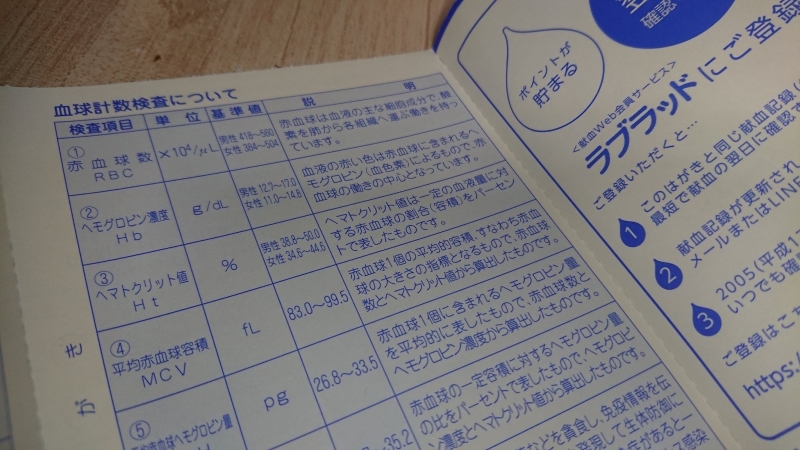 血球計数検査について
検査項目 単位 基準値 説明
①
赤血球数
RBC
×10⁴/μL
男性 418~560
女性 384~504
赤血球は血液の主な細胞成分で、酸
素を肺から各組織へ運ぶ働きを持っ
ています。
②
ヘモグロビン濃度
Hb
g/dL
男性 12.7~17.0
女性 11.0~14.8
血液の赤い色は赤血球に含まれるヘ
モグロビン(血色素)によるもので、赤
血球の働きの中心となっています。
③
ヘマトクリット値
Ht
%
男性 38.8~50.0
女性 34.6~44.6
ヘマトクリット値は、一定の血液量に対
する赤血球の割合(容積)をパーセン
トで表したものです。
④
平均赤血球容積
MCV
fL
83.0~99.5
赤血球1個の平均的容積、すなわち赤血
球の大きさの指標となるもので、赤血球
数とヘマトクリット値から算出したものです。
⑤
平均赤血球ヘモグロビン量
pg
26.8~33.5
赤血球1個に含まれるヘモグロビン量
を平均的に表したもので、赤血球数と
ヘモグロビン濃度から算出したものです。
35.2
赤血球の一定容積に対するヘモグロビン量
の比をパーセントで表したもので、ヘモグロビ
ン濃度とヘマトクリット値から算出したものです。
などを貪食し、免疫情報を伝
発現して生体防御に
症があると一
ス感染
き
が
確認
ポイントが
貯まる
<献血Web会員サービス>
ラブラッドにご登録
ご登録いただくと…
1 このはがきと同じ献血記録(
最短で献血の翌日に確認で
2 献血記録が更新され
メールまたはLIN
3 2005(平成1
いつでも確
ご登録はこち
https:/